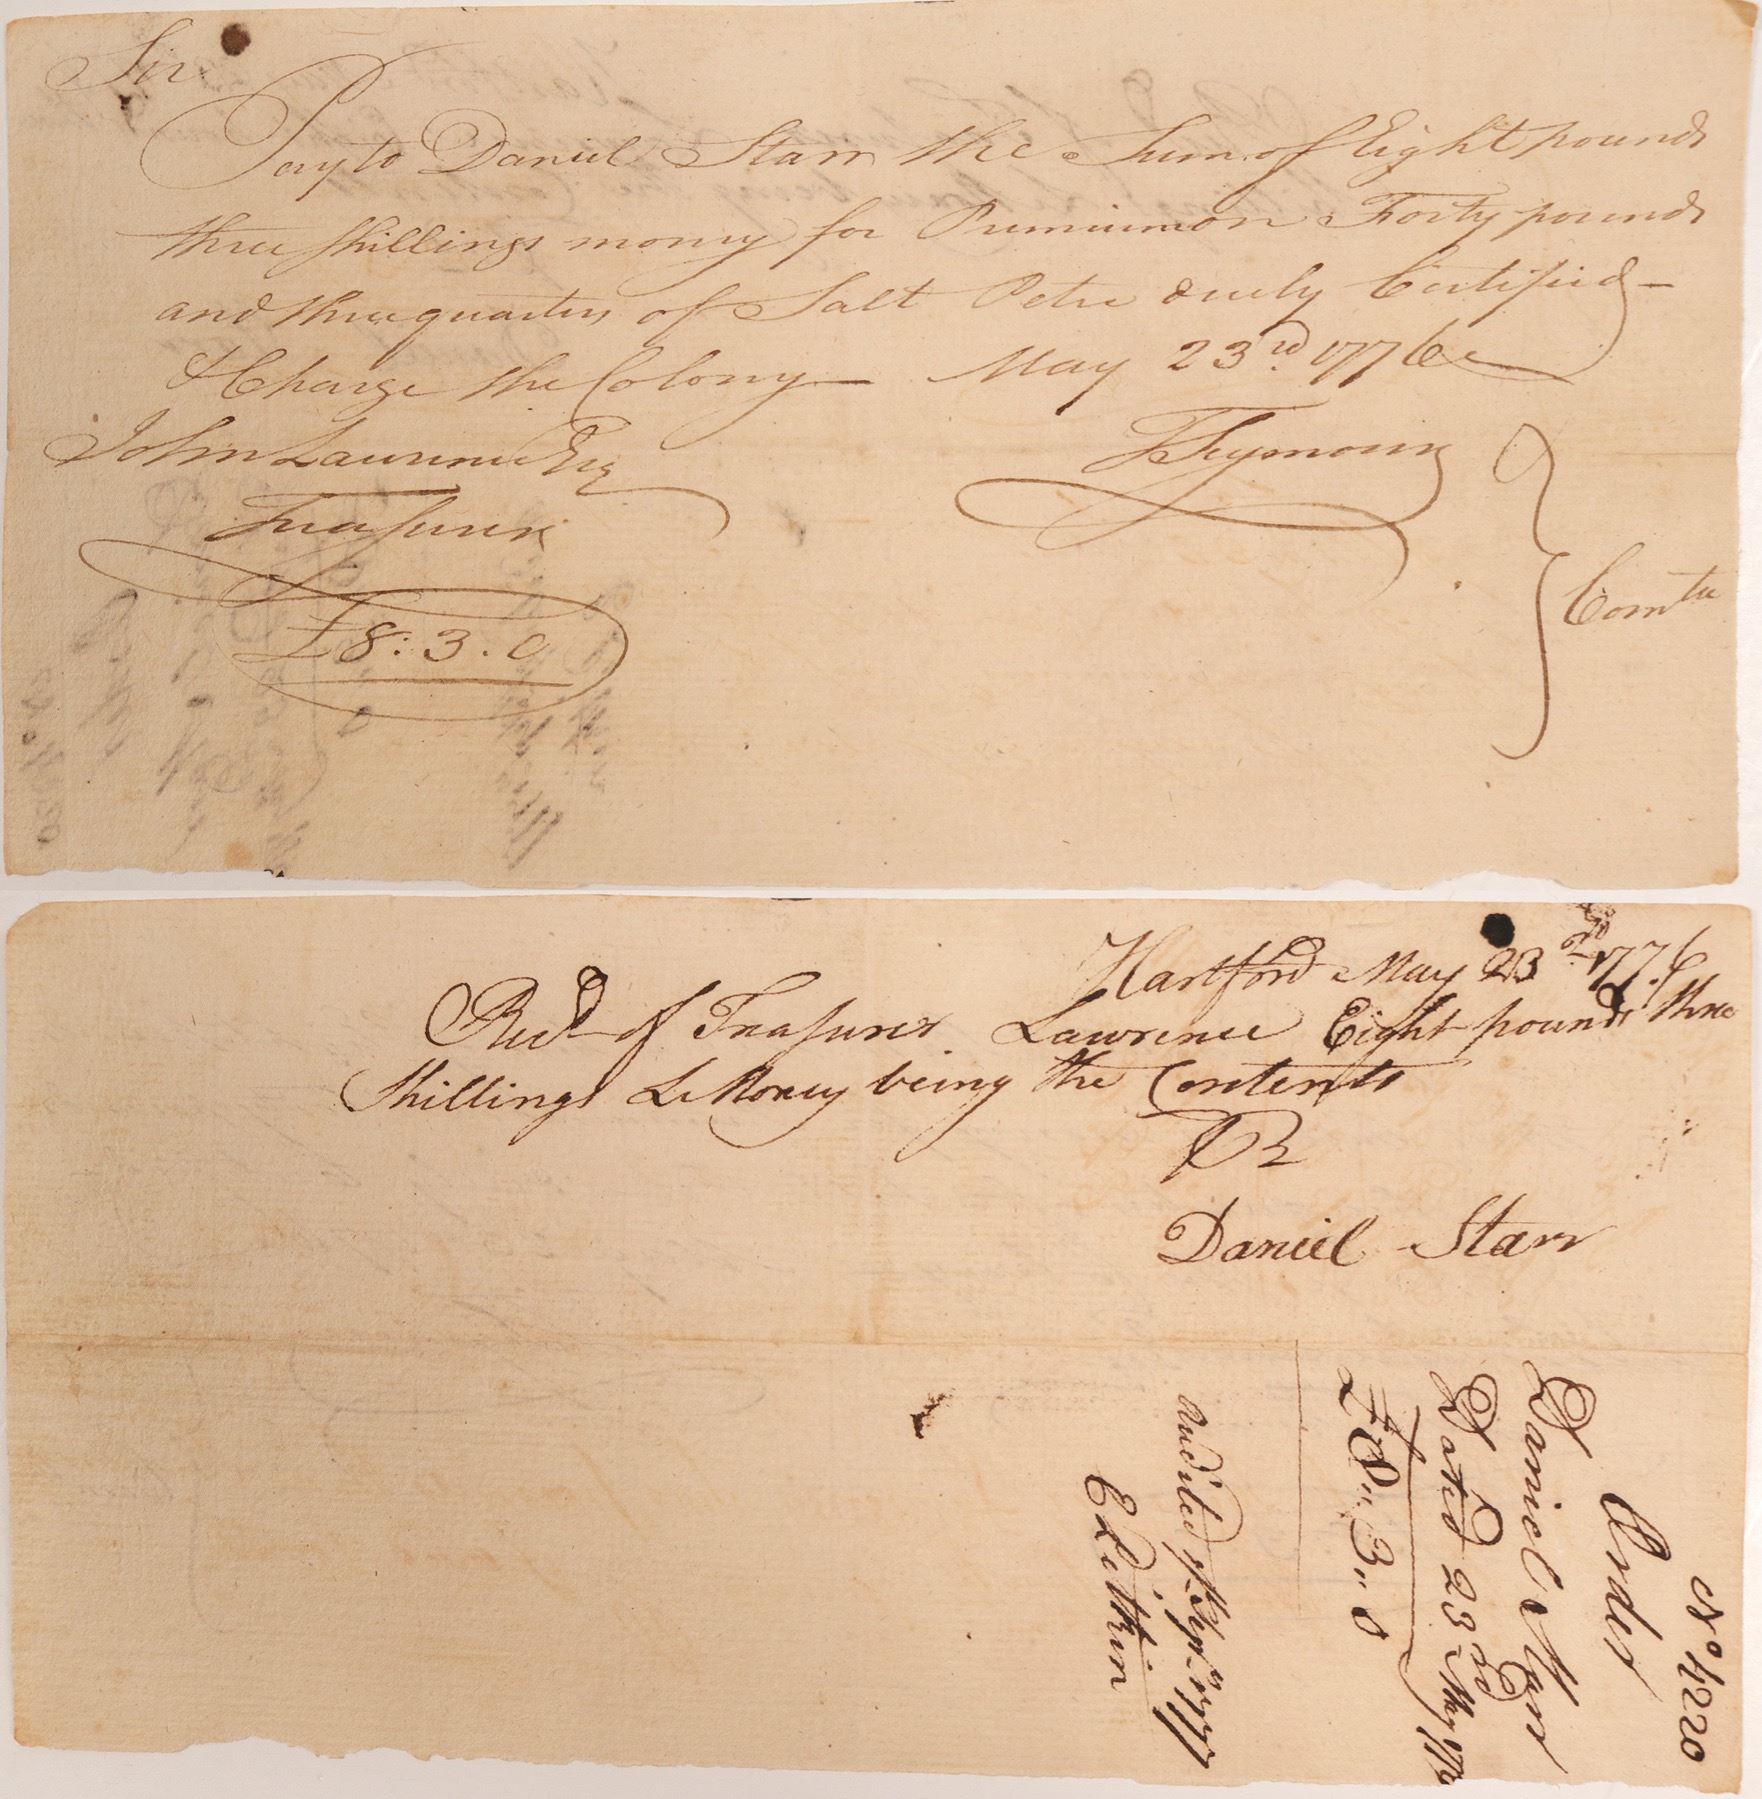 Sir
Pay to Daniel Starr the Sum of Eight pounds
three shillings money for Premium on Forty pounds
and three quarters of Salt Petre duely Certified —
& Charge the Colony — May 23rd. 1776
John Lawrence Esq
Treasurer
£8:3.0
T Seymour
Comtee
Hartford May 23rd 1776
Recd of Treasurer Lawrence Eight pounds three
Shillings L Money being the Contents
Daniel Starr
No 4220
Order
Daniel Starr
Dated 23rd May 1776
£8"3"0
Audited Sepr 1777